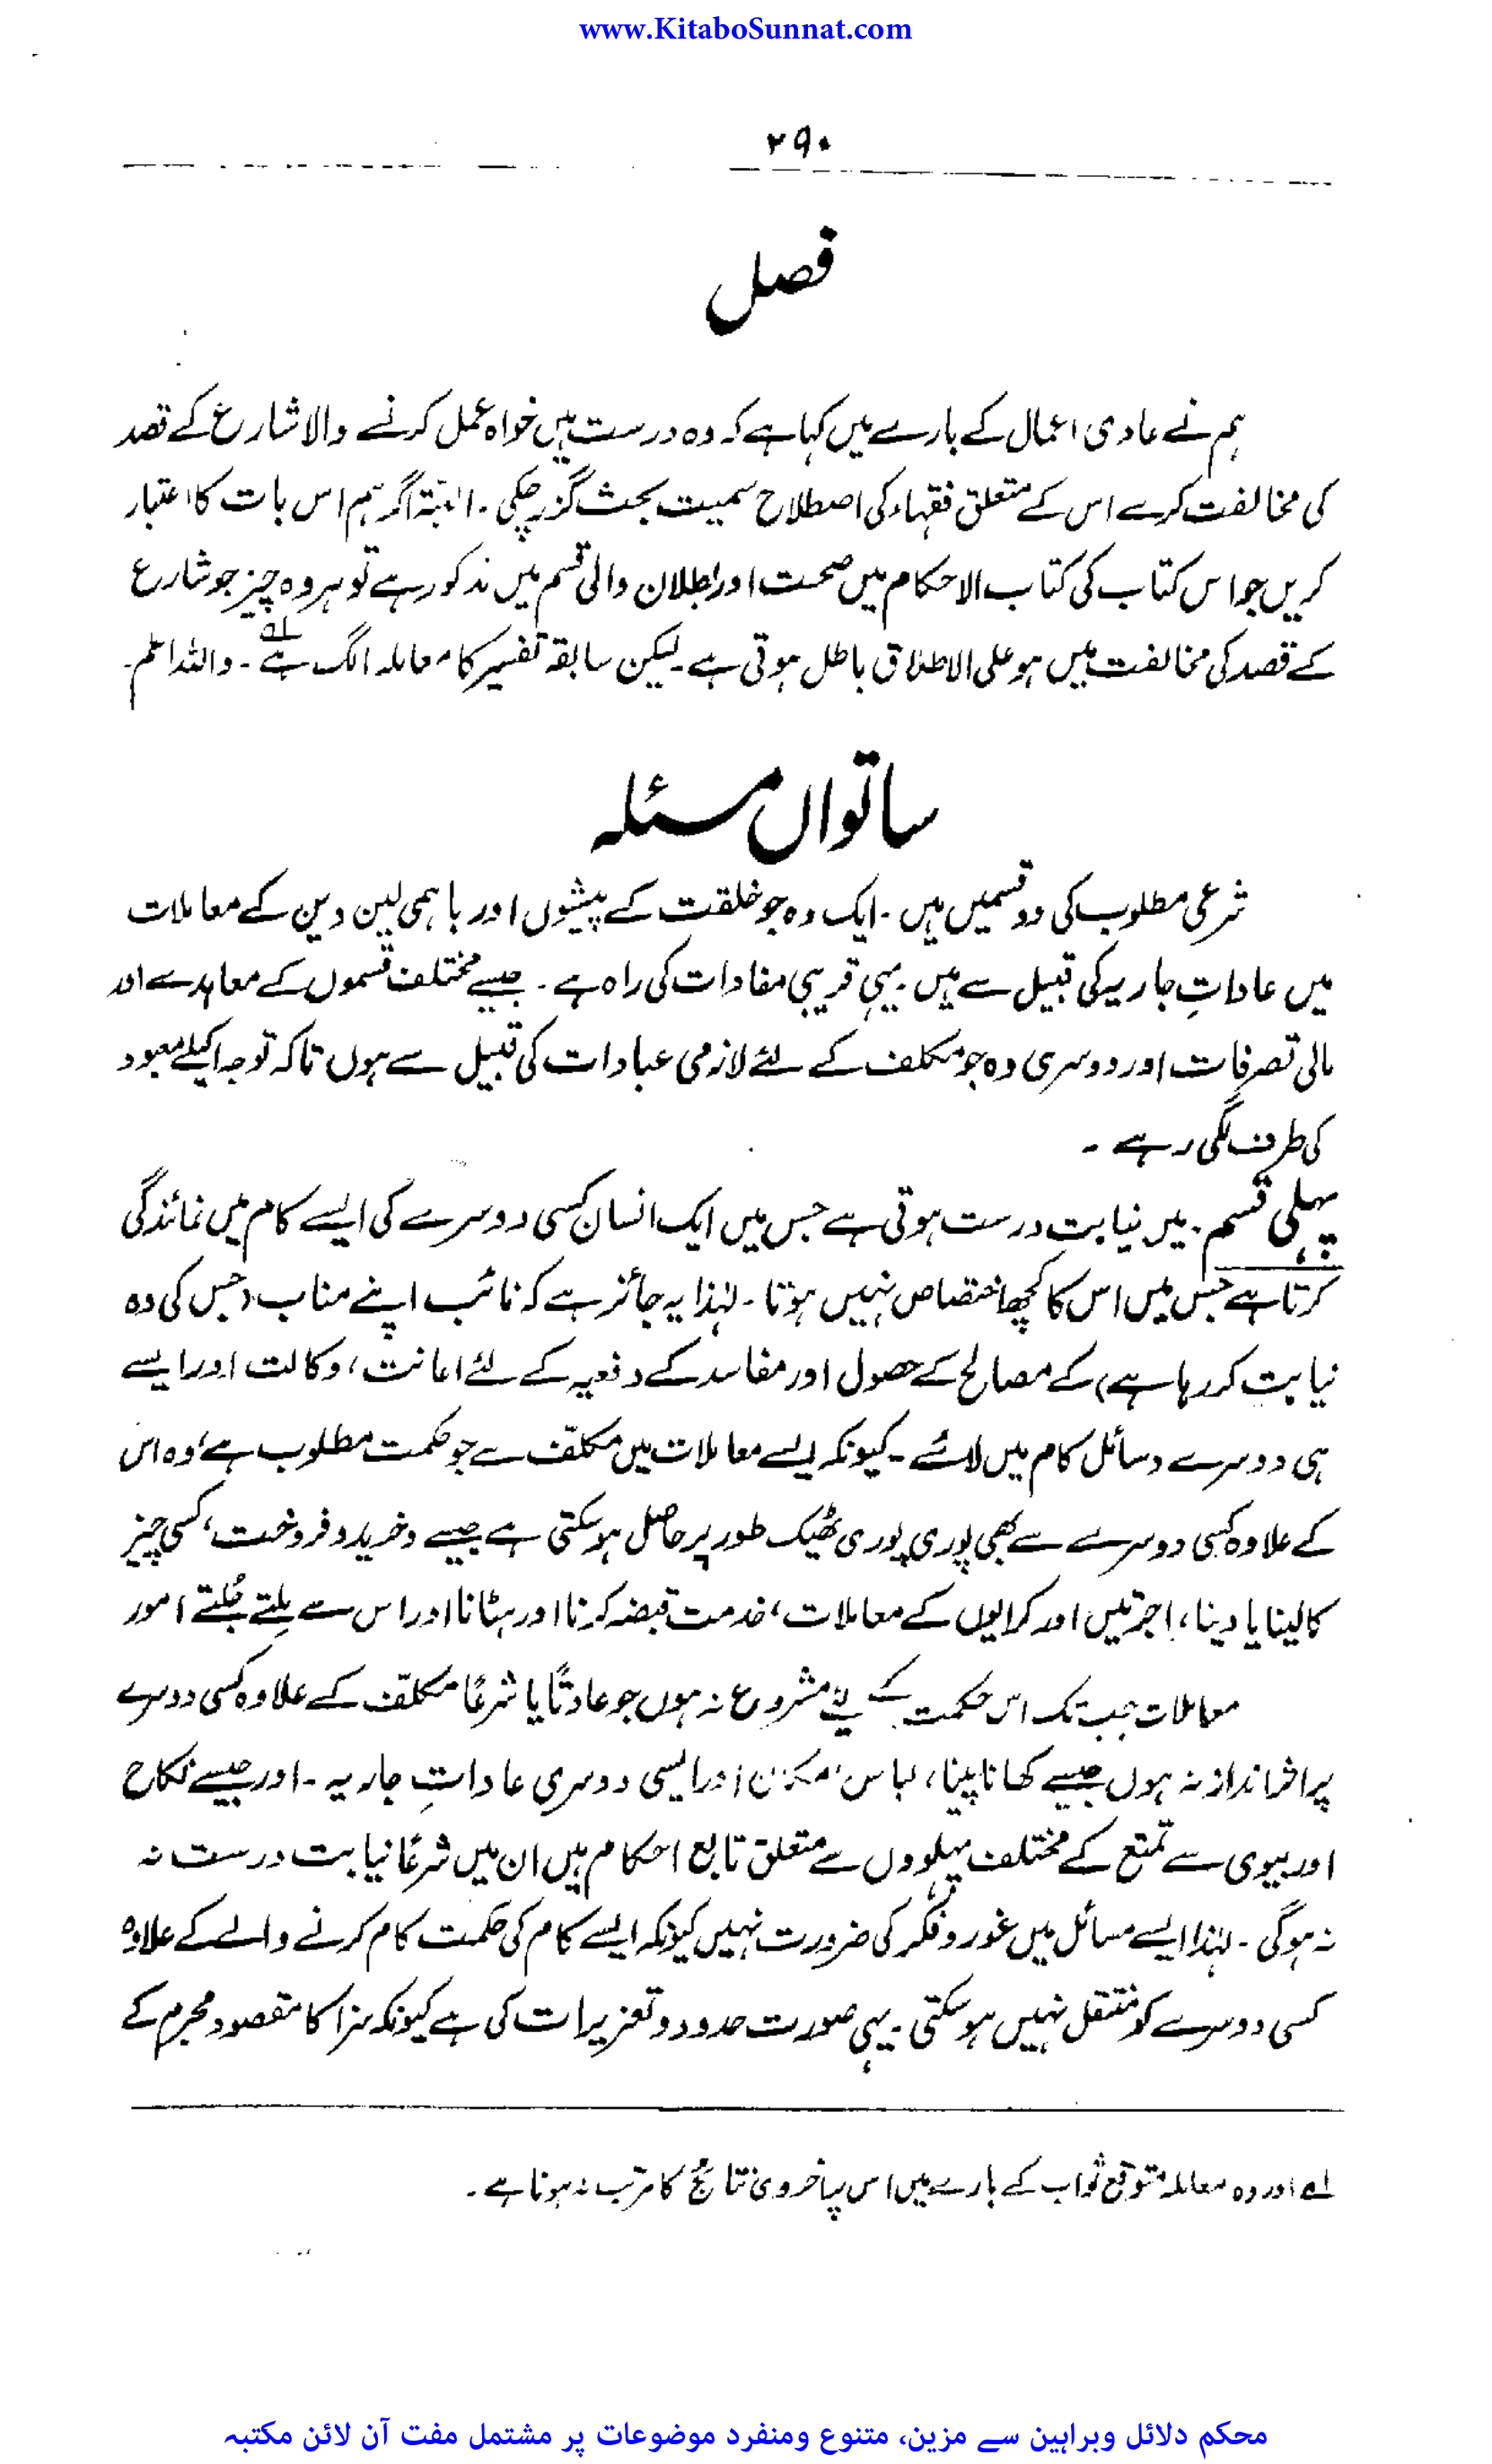 www.KitaboSunnat.com
۲۹۰
فصل
ہم نے عادی اعمال کے بارے میں کہا ہے کہ وہ درست ہیں خواہ عمل کرنے والا شارع کے قصد
کی مخالفت کرے اس کے متعلق فقہاء کی اصطلاح سمیت بحث گزر چکی ۔ البتہ اگر ہم اس بات کا اعتبار
کریں جو اس کتاب کی کتاب الاحکام میں صحت اور بطلان والی قسم میں مذکور ہے تو ہر وہ چیز جو شارع
کے قصد کی مخالفت میں ہو علی الاطلاق باطل ہوتی ہے ۔ لیکن سابقہ تفسیر کا معاملہ الگ ہے ۱ے ۔ واللہ اعلم ۔
ساتواں مسئلہ
شرعی مطلوب کی دو قسمیں ہیں ۔ ایک وہ جو خلقت کے پیشوں اور باہمی لین دین کے معاملات
میں عاداتِ جاریہ کی قبیل سے ہیں ۔ یہی قریبی مفادات کی راہ ہے ۔ جیسے مختلف قسموں کے معاہدے اور
مالی تصرفات اور دوسری وہ جو مکلف کے لئے لازمی عبادات کی قبیل سے ہوں تاکہ توجہ اکیلے معبود
کی طرف لگی رہے ۔
پہلی قسم ۔ میں نیابت درست ہوتی ہے جس میں ایک انسان کسی دوسرے کی ایسے کام میں نمائندگی
کرتا ہے جس میں اس کا کچھ اختصاص نہیں ہوتا ۔ لہٰذا یہ جائز ہے کہ نائب اپنے مناب (جس کی وہ
نیابت کر رہا ہے) کے مصالح کے حصول اور مفاسد کے دفعیہ کے لئے اعانت ، وکالت اور ایسے
ہی دوسرے وسائل کام میں لائے ۔ کیونکہ ایسے معاملات میں مکلّف سے جو حکمت مطلوب ہے ، وہ اس
کے علاوہ کسی دوسرے سے بھی پوری پوری ٹھیک طور پر حاصل ہو سکتی ہے جیسے وخرید و فروخت ، کسی چیز
کا لینا یا دینا ، اجرتیں اور کرایوں کے معاملات ، خدمت قبضہ کرنا اور ہٹانا اور اس سے ملتے جُلتے امور
معاملات جب تک اس حکمت کے لیے مشروع نہ ہوں جو عادتًا یا شرعًا مکلّف کے علاوہ کسی دوسرے
پر اثر انداز نہ ہوں جیسے کھانا پینا ، لباس ، مکان اور ایسی دوسری عاداتِ جاریہ ۔ اور جیسے نکاح
اور بیوی سے تمتع کے مختلف پہلووں سے متعلق تابع احکام ہیں ان میں شرعًا نیابت درست نہ
نہ ہوگی ۔ لہٰذا ایسے مسائل میں غور و فکر کی ضرورت نہیں کیونکہ ایسے کام کی حکمت کام کرنے والے کے علاوہ
کسی دوسرے کو منتقل نہیں ہو سکتی ۔ یہی صورت حدود و تعزیرات کی ہے کیونکہ سزا کا مقصود مجرم کے
۱ے اور وہ معاملہ متوقع ثواب کے بارے میں اس پر اخروی نتائج کا مرتب نہ ہونا ہے ۔
محکم دلائل وبراہین سے مزین، متنوع ومنفرد موضوعات پر مشتمل مفت آن لائن مکتبہ